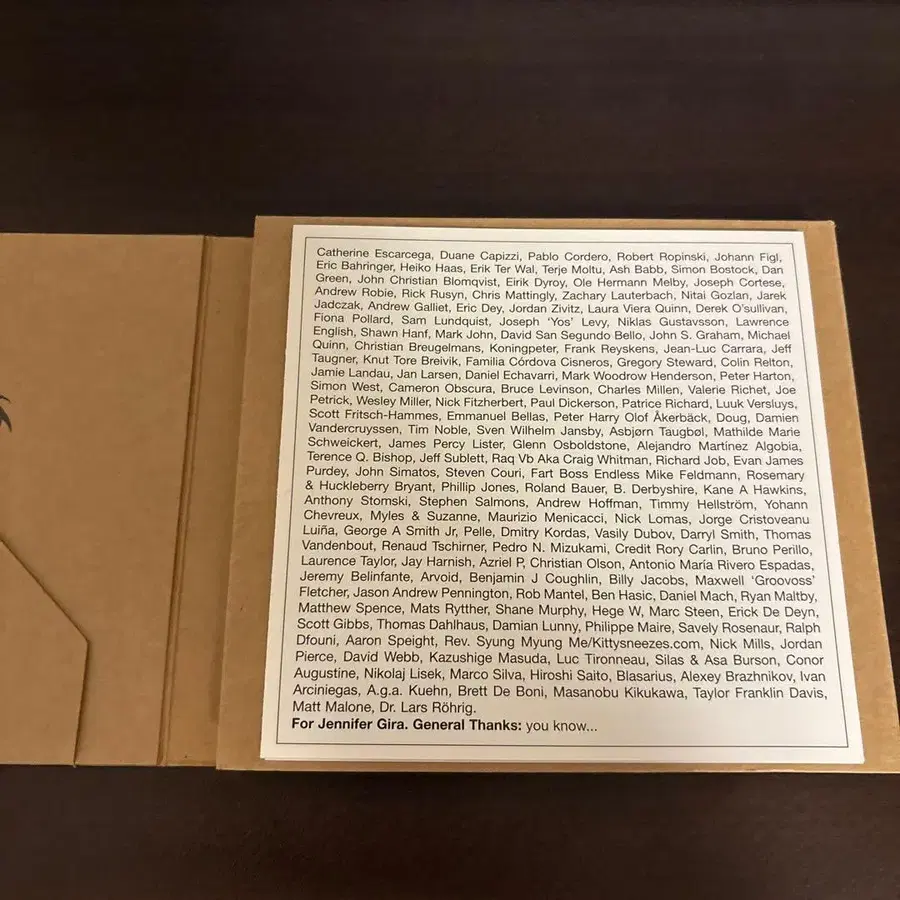 Catherine Escarcega, Duane Capizzi, Pablo Cordero, Robert Ropinski, Johann Figl,
Eric Bahringer, Heiko Haas, Erik Ter Wal, Terje Moltu, Ash Babb, Simon Bostock, Dan
Green, John Christian Blomqvist, Eirik Dyroy, Ole Hermann Melby, Joseph Cortese,
Andrew Robie, Rick Rusyn, Chris Mattingly, Zachary Lauterbach, Nitai Gozlan, Jarek
Jadczak, Andrew Galliet, Eric Dey, Jordan Zivitz, Laura Viera Quinn, Derek O'sullivan,
Fiona Pollard, Sam Lundquist, Joseph 'Yos' Levy, Niklas Gustavsson, Lawrence
English, Shawn Hanf, Mark John, David San Segundo Bello, John S. Graham, Michael
Quinn, Christian Breugelmans, Koningpeter, Frank Reyskens, Jean-Luc Carrara, Jeff
Taugner, Knut Tore Breivik, Familia Córdova Cisneros, Gregory Steward, Colin Relton,
Jamie Landau, Jan Larsen, Daniel Echavarri, Mark Woodrow Henderson, Peter Harton,
Simon West, Cameron Obscura, Bruce Levinson, Charles Millen, Valerie Richet, Joe
Petrick, Wesley Miller, Nick Fitzherbert, Paul Dickerson, Patrice Richard, Luuk Versluys,
Scott Fritsch-Hammes, Emmanuel Bellas, Peter Harry Olof Åkerbäck, Doug, Damien
Vandercruyssen, Tim Noble, Sven Wilhelm Jansby, Asbjørn Taugbøl, Mathilde Marie
Schweickert, James Percy Lister, Glenn Osboldstone, Alejandro Martínez Algobia,
Terence Q. Bishop, Jeff Sublett, Raq Vb Aka Craig Whitman, Richard Job, Evan James
Purdey, John Simatos, Steven Couri, Fart Boss Endless Mike Feldmann, Rosemary
& Huckleberry Bryant, Phillip Jones, Roland Bauer, B. Derbyshire, Kane A Hawkins,
Anthony Stomski, Stephen Salmons, Andrew Hoffman, Timmy Hellström, Yohann
Chevreux, Myles & Suzanne, Maurizio Menicacci, Nick Lomas, Jorge Cristoveanu
Luiña, George A Smith Jr, Pelle, Dmitry Kordas, Vasily Dubov, Darryl Smith, Thomas
Vandenbout, Renaud Tschirner, Pedro N. Mizukami, Credit Rory Carlin, Bruno Perillo,
Laurence Taylor, Jay Harnish, Azriel P, Christian Olson, Antonio María Rivero Espadas,
Jeremy Belinfante, Arvoid, Benjamin J Coughlin, Billy Jacobs, Maxwell 'Groovoss'
Fletcher, Jason Andrew Pennington, Rob Mantel, Ben Hasic, Daniel Mach, Ryan Maltby,
Matthew Spence, Mats Rytther, Shane Murphy, Hege W, Marc Steen, Erick De Deyn,
Scott Gibbs, Thomas Dahlhaus, Damian Lunny, Philippe Maire, Savely Rosenaur, Ralph
Dfouni, Aaron Speight, Rev. Syung Myung Me/Kittysneezes.com, Nick Mills, Jordan
Pierce, David Webb, Kazushige Masuda, Luc Tironneau, Silas & Asa Burson, Conor
Augustine, Nikolaj Lisek, Marco Silva, Hiroshi Saito, Blasarius, Alexey Brazhnikov, Ivan
Arciniegas, A.g.a. Kuehn, Brett De Boni, Masanobu Kikukawa, Taylor Franklin Davis,
Matt Malone, Dr. Lars Röhrig.
For Jennifer Gira. General Thanks: you know...